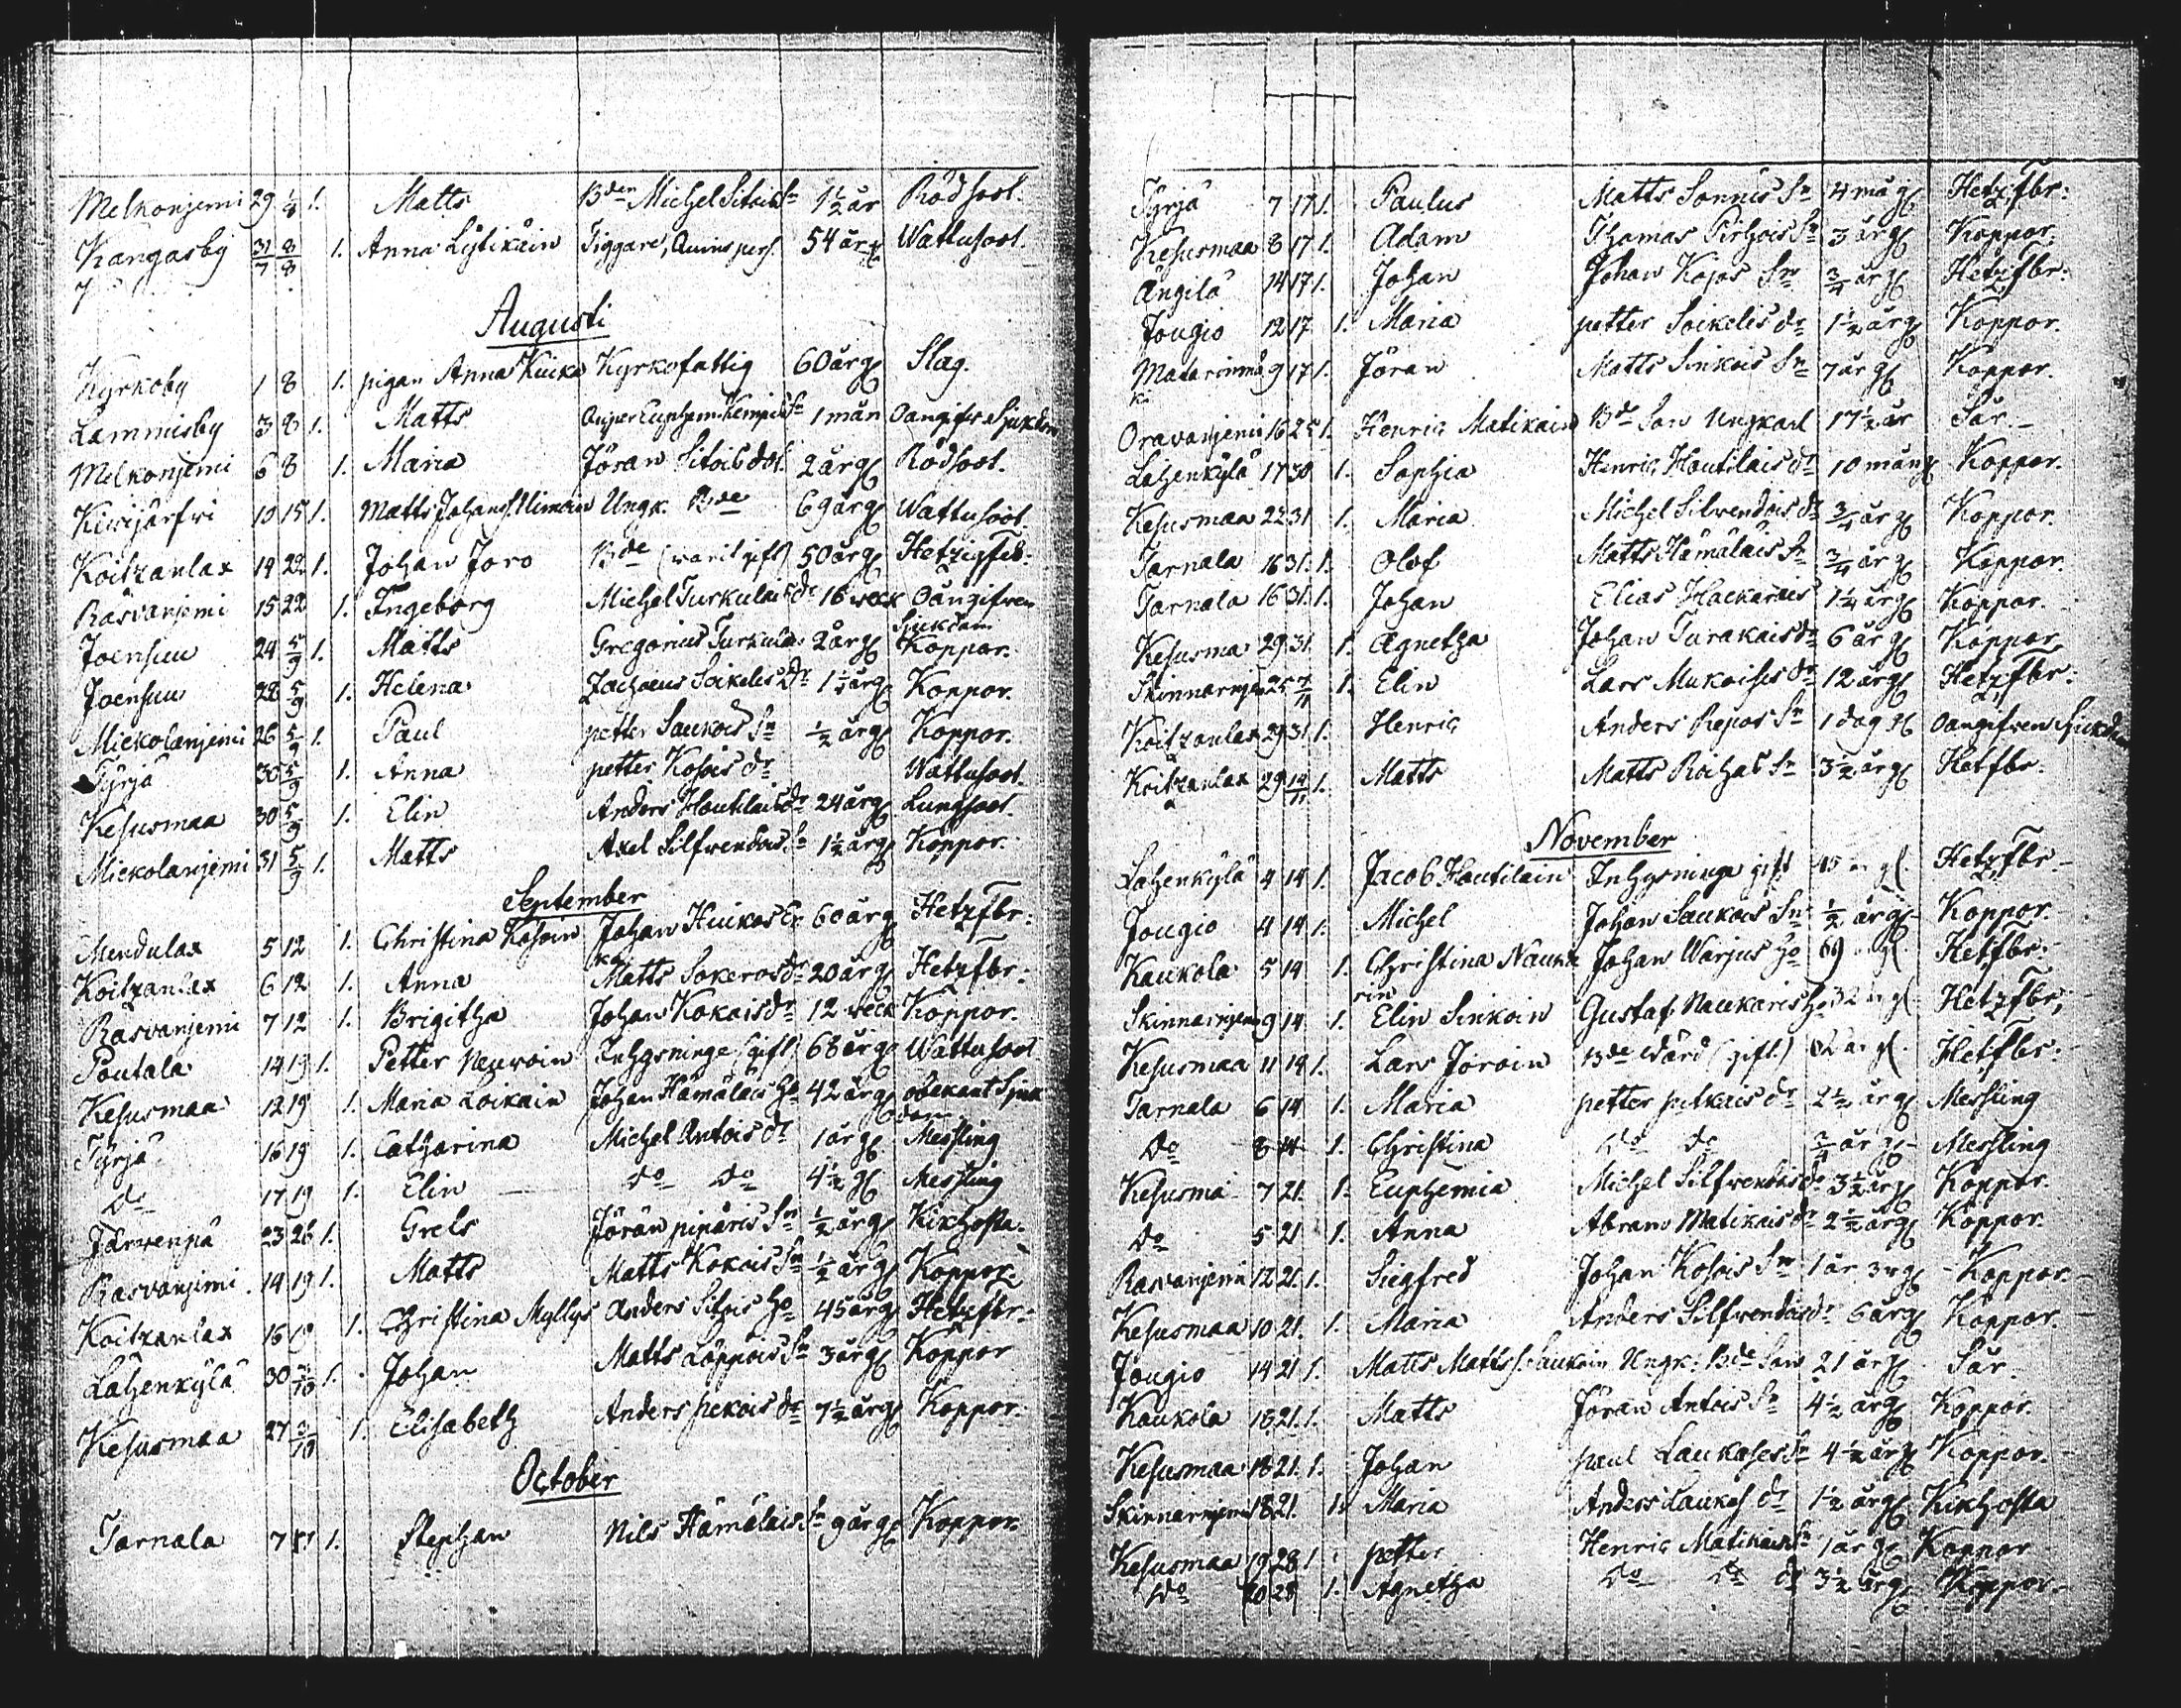 Melkonjemi 29 1/8 1. Matts Bden Michel Sitois Sn 1 1/2 år Rödsoot.
Kangasby 31/7 8/8 1. Anna Lytikäin Tiggare, Quins pers. 54 år gl Wattusoot.
Augusti
Kyrkoby 1 8 1. pigan Anna Kuika Kyrkofattig 60 år gl Slag.
Lammisby 3 8 1. Matts 1 mån Oangifw Sjukdom
Melkonjemi 6 8 1. Maria Jöran Sitois dot. 2 år gl Rödsoot.
Kiwijärfwi 10 15 1. Matts Johans. Ungk. Bde 69 år gl Wattusoot.
Koitzanlax 19 22 1. Johan Joro Bde (warit gift) 50 år gl Hetzigfeb.
Räsvänjemi 15 22 1. Ingeborg Michel Turkulais dr 16 weck Oangifwen Sjukdom
Joensuu 24 5/9 1. Matts Gregorius Turkulas 2 år gl Koppor.
Joensuu 28 5/9 1. Helena Zachaeus Soikelis Dr 1 1/2 år gl Koppor.
Mickolanjemi 26 5/9 1. Paul petter Saukois Sn 1/2 år gl Koppor.
Tyrjä 30 5/9 1. Anna petter Kosois dr Wattusoot.
Kesusmaa 30 5/9 1. Elin Anders Hautilais dr 24 år gl Lungsoot.
Mickolanjemi 31 5/9 1. Matts Axel Silfwendois Sn 1 1/2 år gl Koppor.
September
Mendulax 5 12 1. Christina Kosoin Johan Huikos Er ka 60 år gl Hetzfbr:
Koitzanlax 6 12 1. Anna Matts Sokeros dr 20 år gl Hetzfbr:
Räsvänjemi 7 12 1. Brigitha Johan Kokois dr 12 weck Koppor.
Poutala 14 19 1. Petter Neuwoin Inhysninge (gift) 68 år gl Wattusoot
Kesusmaa 12 19 1. Maria Loikain Johan Hämäläis Ho 42 år gl obekant Sjukdom
Tyrjä 16 19 1. Catharina Michel Antois dr 1 år gl. Messling
Do 17 19 1. Elin Do Do 4 1/2 gl Messling
Järwenpä 23 26 1. Grels Jöran pipäris Sn 1/2 år gl Kikhosta.
Räsvänjemi. 14 19 1. Matts Matts Kokois Sn 1/2 år gl Koppor.
Koitzanlax 16 19 1. Christina Myllys Anders Sitois Ho 45 år gl Hetzfbr:
Lahenkylä 30 3/10 1. Johan Matts Löppois Sn 3 år gl Koppor
Kesusmaa 27 3/10 1. Elisabeth Anders pekois dr 7 1/2 år gl Koppor.
October
Tarnala 7 17 1. Stephan Nils Hämäläis Sn 9 år gl Koppor.
Tyrjä 7 17 1. Paulus Matts Sonnis Sn 4 må gl Hetz.fbr:
Kesusmaa 8 17 1. Adam Thomas Pirhois Sn 3 år gl Koppor.
Ängilä 14 17 1. Johan Johan Kojos Sn 3/4 år gl Hetz.fbr:
Jougio 12 17 1. Maria petter Soikelis dr 1 1/2 år gl Koppor.
9 17 1. Jöran Matts Sinkois Sn 7 år gl Koppor.
Oravanjemi 16 25 1. Henric Matikain Bde Son Ungkarl 17 1/2 år Sår.
Lahenkylä 17 30 1. Sophia Henric Hautilais dr 10 mån gl Koppor.
Kesusmaa 22 31 1. Maria Michel Silwendois dr 3/4 år gl Koppor.
Tarnala 16 31. 1. Olof Matts Hämäläis Sn 3/4 år gl Koppor.
Tarnala 16 31. 1. Johan Elias Hackarais 1 1/4 år gl Koppor.
Kesusma 29 31. 1. Agnetha Johan Turakais dr 6 år gl Koppor
Skinnarnjem 25 7/11 1. Elin Lars Mukoises dr 12 år gl Hetzfbr:
Koitzanlax 29 31. 1. Henric Anders Repos Sn 1 dag gl Oangifwen Sjukdom
Koitzanlax 29 14/11 1. Matts Matts Roihas Sn 3 1/2 år gl Hetfbr.
November
Lahenkylä 4 14 1. Jacob Hautilain Inhysninge gift 45 år gl. Hetzfbr
Jougio 4 14 1. Michel Johan Saukois Sn 1/2 år gl Koppor.
Kaukola 5 14 1. Christina Naukarin Johan Warjus Ho 69 år gl. Hetfbr.
Skinnarnjem 9 14 1. Elin Sinkoin Gustaf Naukaris Ho 32 år gl Hetzfbr,
Kesusmaa 11 14 1. Lars Joroin Bde Wärd (gift) 82 år gl. Hetfbr.
Tarnala 6 14 1. Maria petter pitkäis dr 2 1/2 år gl Messling
Do 8 14 1. Christina Do do 3/4 år gl Messling
Kesusma 7 21. 1. Euphemia Michel Silfwendois dr 3 1/2 år gl Koppor.
Do 5 21 1. Anna Abram Matikais dr 2 1/2 år gl Koppor.
Räsvänjemi 12 21. 1. Siegfred Johan Kosois Sn 1 år 3 gl Koppor.
Kesusmaa 10 21. 1. Maria Anders Silfwendois dr 6 år gl Koppor.
Jougio 14 21 1. Matts Matts s. Saukoin Ungk: Bde Son 21 år gl Sår.
Kaukola 15 21. 1. Matts Jöran Antois Sn 4 1/2 år gl Koppor.
Kesusmaa 18 21. 1. Johan paul Laukases Sn 4 1/2 år gl Koppor.
Skinnarnjemi 18 21. 1. Maria Anders Laukas dr 1 1/2 år gl Kikhosta
Kesusmaa 19 28 1. petter Henric Matikais Sn 1 år gl Koppor
Do 20 28 1. Agnetha Do Do dr 3 1/2 år gl Koppor.